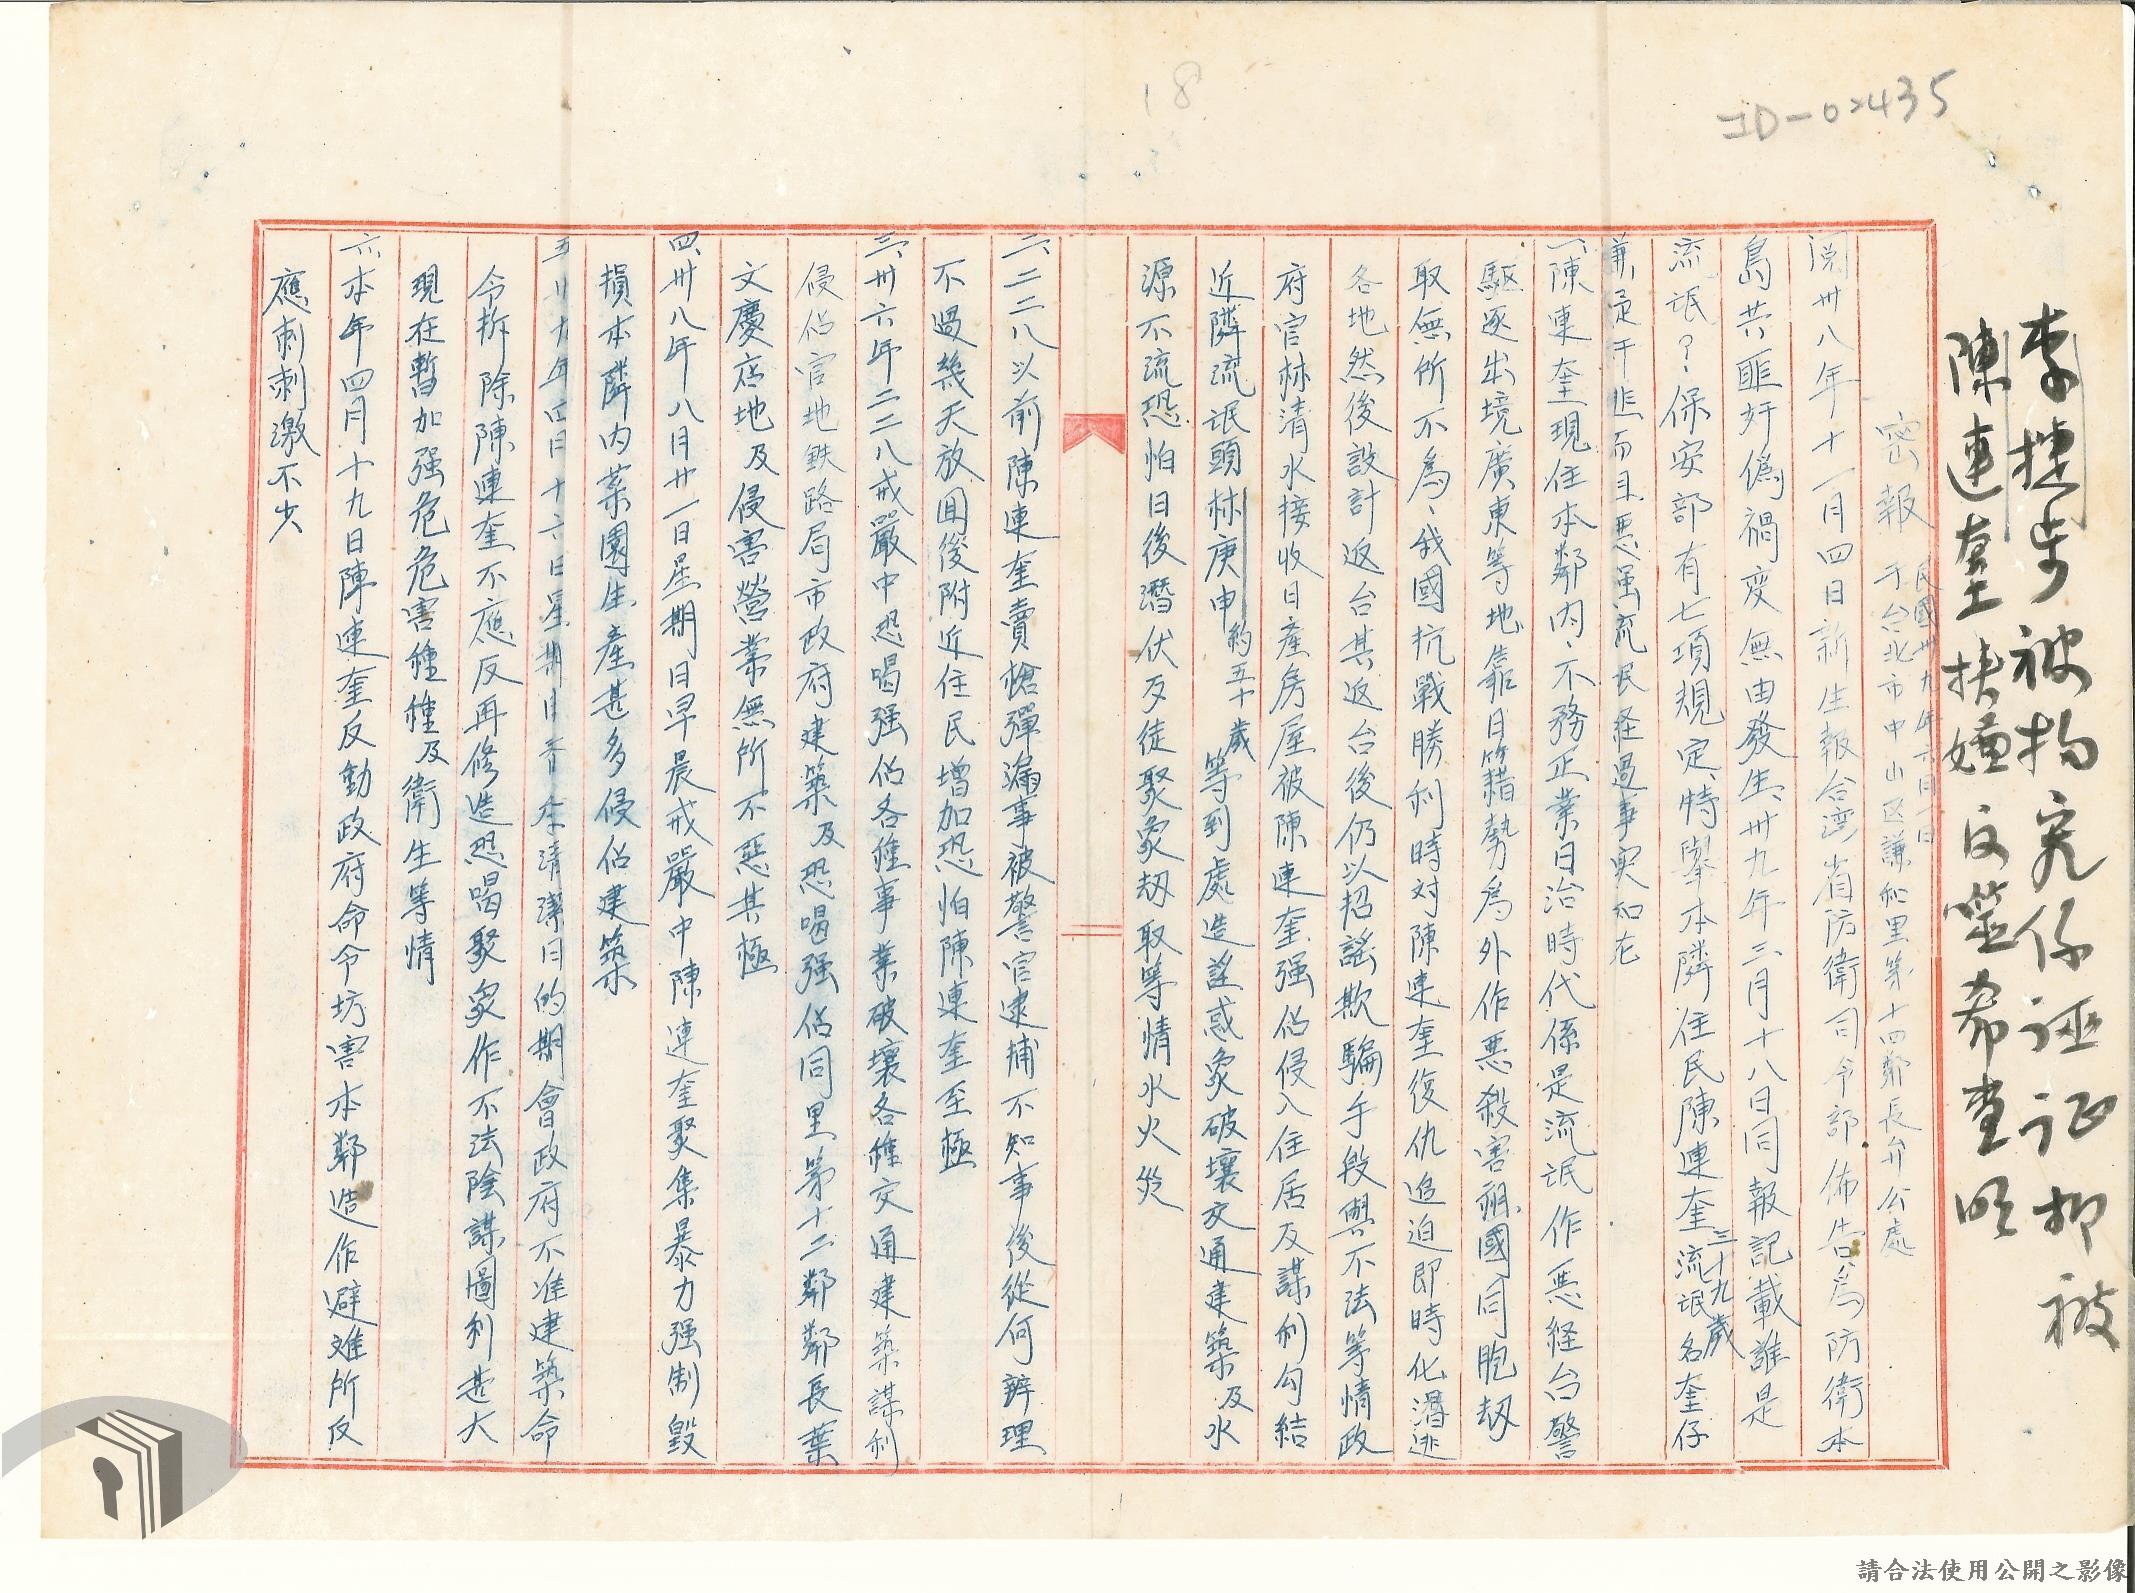 18
JD-02435
李捷步被拘究係誣证抑被
陳連奎挾嫌反噬希查明
民國卅九年六月一日
密報 于台北市中山区謙和里第十四鄰長弁公處
閱卅八年十一月四日新生報台湾省防衛司令部佈告為防衛本
島共匪奸僞禍变無由發生、卅九年三月十八日同報記載誰是
流氓？保安部有七項規定、特舉本隣住民陳連奎三十九歲流氓名奎仔
兼是干匪而且悪虽流民経過事実如左
一、陳連奎現住本鄰內、不務正業日治時代係是流氓作悪経台警
驅逐出境廣東等地靠日籍勢為外作悪殺害祖國同胞刼
取無所不為、我國抗戰勝利時对陳連奎復仇追迫即時化潛逃
各地然後設計返台其返台後仍以招謠欺騙手段與不法等情政
府官林清水接收日產房屋被陳連奎强佔侵入住居及謀利勾結
近隣流氓頭林庚申約五十歲等到處造謠惑衆破壞交通建築及水
源不流恐怕日後潛伏歹徒聚衆刼取等情水火災
二、二二八以前陳連奎賣槍彈漏事被警官逮捕不知事後從何辨理
不過幾天放囬後附近住民增加恐怕陳連奎至極
三、卅六年二二八戒嚴中恐喝强佔各種事業破壞各種交通建築謀利
侵佔官地鉄路局市政府建築及恐喝强佔同里第十二鄰鄰長葉
文慶店地及侵害營業無所不惡其極
四、卅八年八月廿一日星期日早晨戒嚴中陳連奎聚集暴力强制毀
損本隣内菜園生產甚多侵佔建築
五、卅九年四月十六日星期日斉々清潔日的期會政府不准建築命
令拆除陳連奎不應反再修造恐喝聚衆作不法陰謀圖利甚大
現在暫加强危危害種種及衛生等情
六、本年四月十九日陳連奎反動政府命令坊害本鄰造作避难所反
應刺刺激不少
請合法使用公開之影像